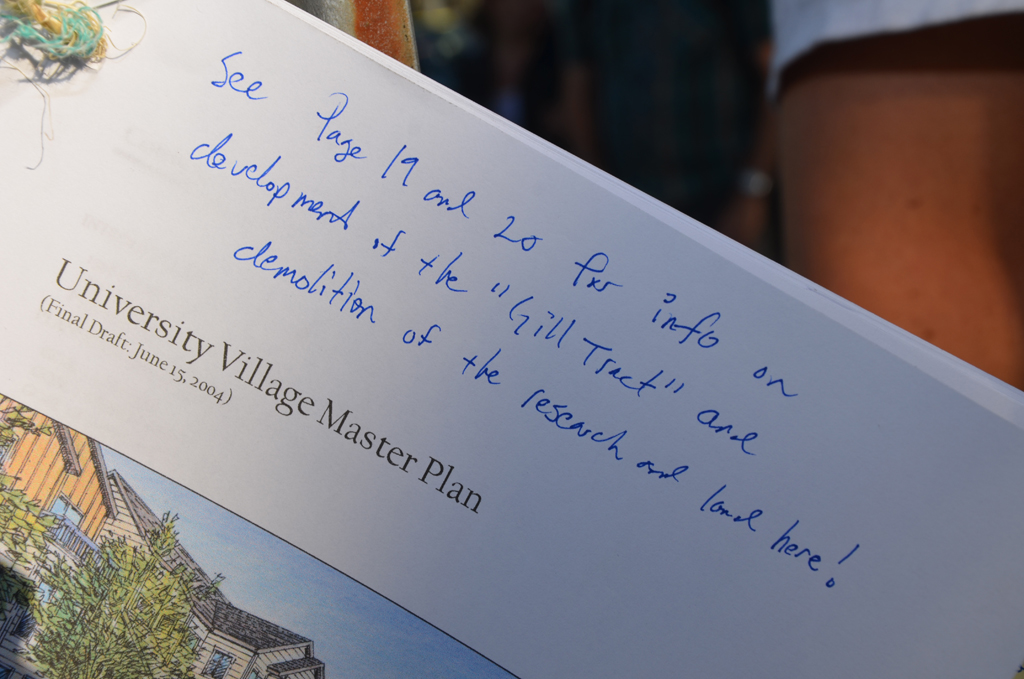 See Page 19 and 20 for info on
development of the "Gill Tract" and
demolition of the research and land here!
University Village Master Plan
(Final Draft: June 15, 2004)